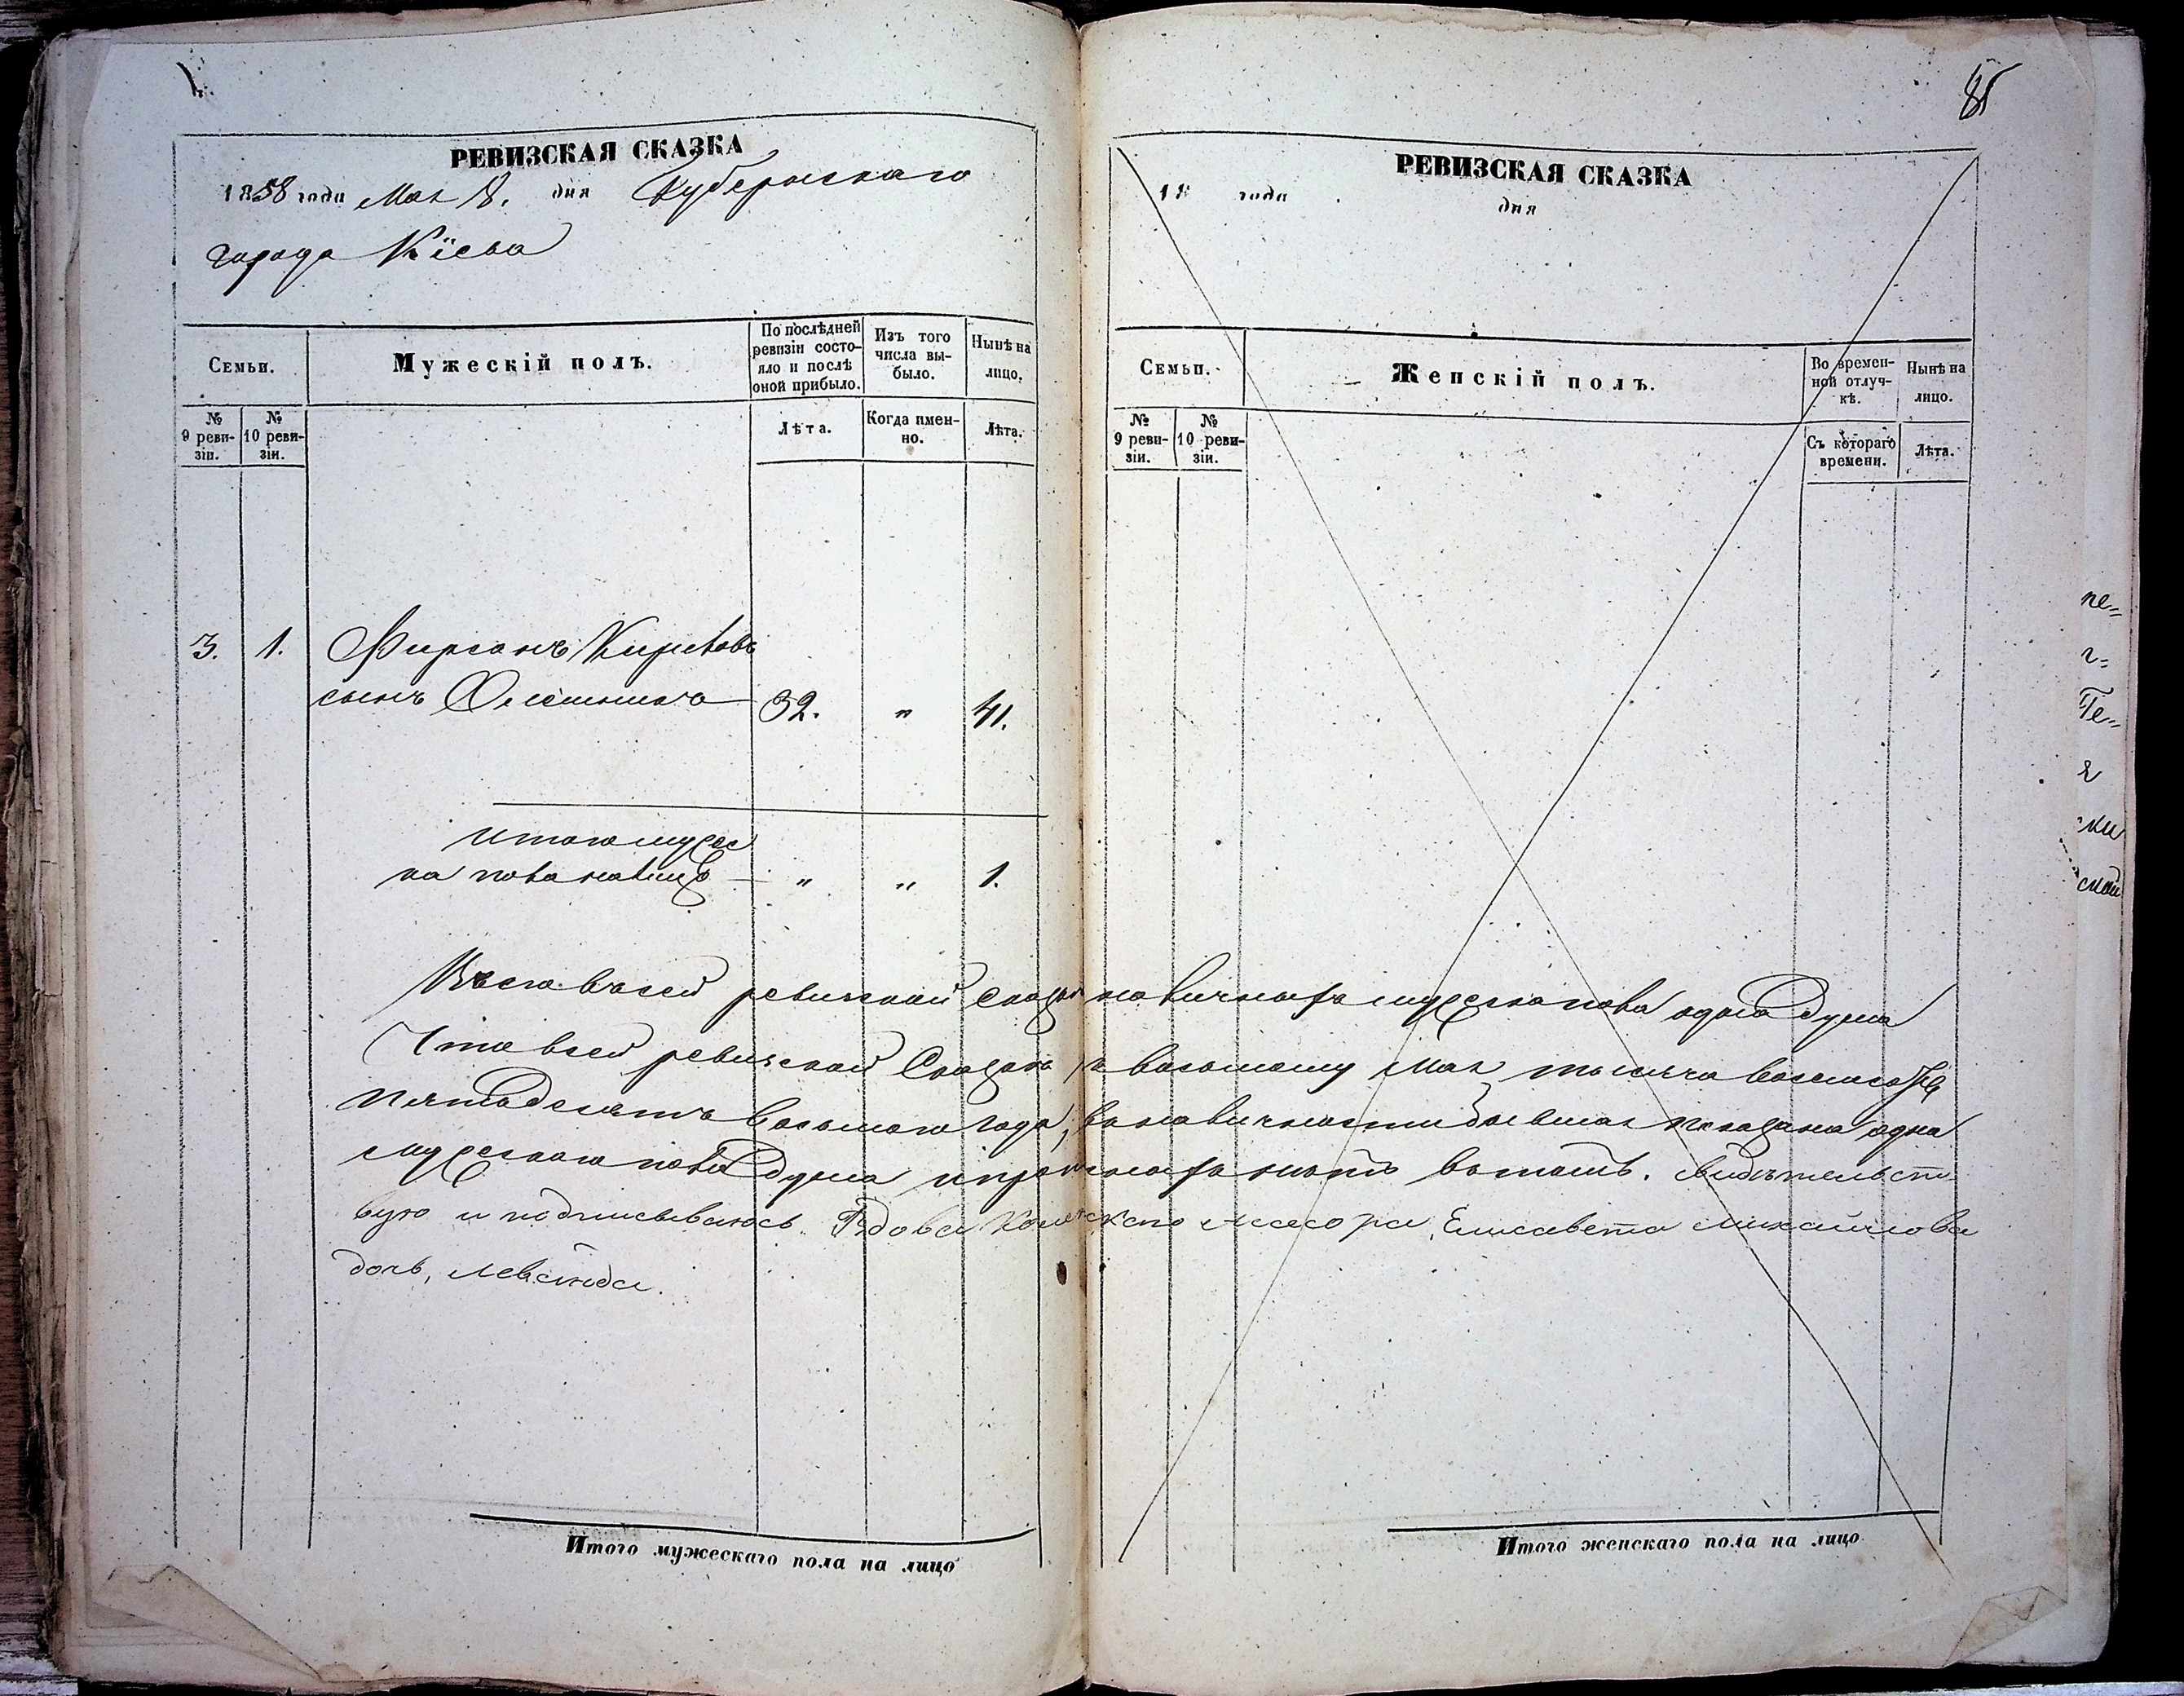 85
РЕВИЗСКАЯ СКАЗКА
1858 года Мая 8. дня Губернскаго
города Кіева
Семьи.
Мужескій полъ.
По послѣдней ревизіи состояло и послѣ оной прибыло.
Изъ того числа выбыло.
Нынѣ на лицо.
№ 9 ревизіи.
№ 10 ревизіи.
Лѣта.
Когда именно.
Лѣта.
3. 1. Фирсанъ Кириловъ
сынъ 32. " 41.
Итого мужес
ка пола налицо — " " 1.
РЕВИЗСКАЯ СКАЗКА
18 года
дня
Семьи.
Женскій полъ.
Во временной отлучкѣ.
Нынѣ на лицо.
№ 9 ревизіи.
№ 10 ревизіи.
Съ котораго времени.
Лѣта.
Всего в сей ревизской сказки наличныхъ мужеска пола одна душа
Что в сей ревизской Сказки к восьмому Мая тысяча восемсотъ
пятьдесятъ восьмого года, в наличности бывшая показана одна
мужескаго пола душа и прописных нѣтъ въ томъ. свидѣтельст
вую и подписываюсь. Вдова Колежскаго Асесора, Елисавета Михайлова
дочь,
Итого мужескаго пола на лицо
Итого женскаго пола на лицо
пе=
г=
Ге=
я
ски
ской